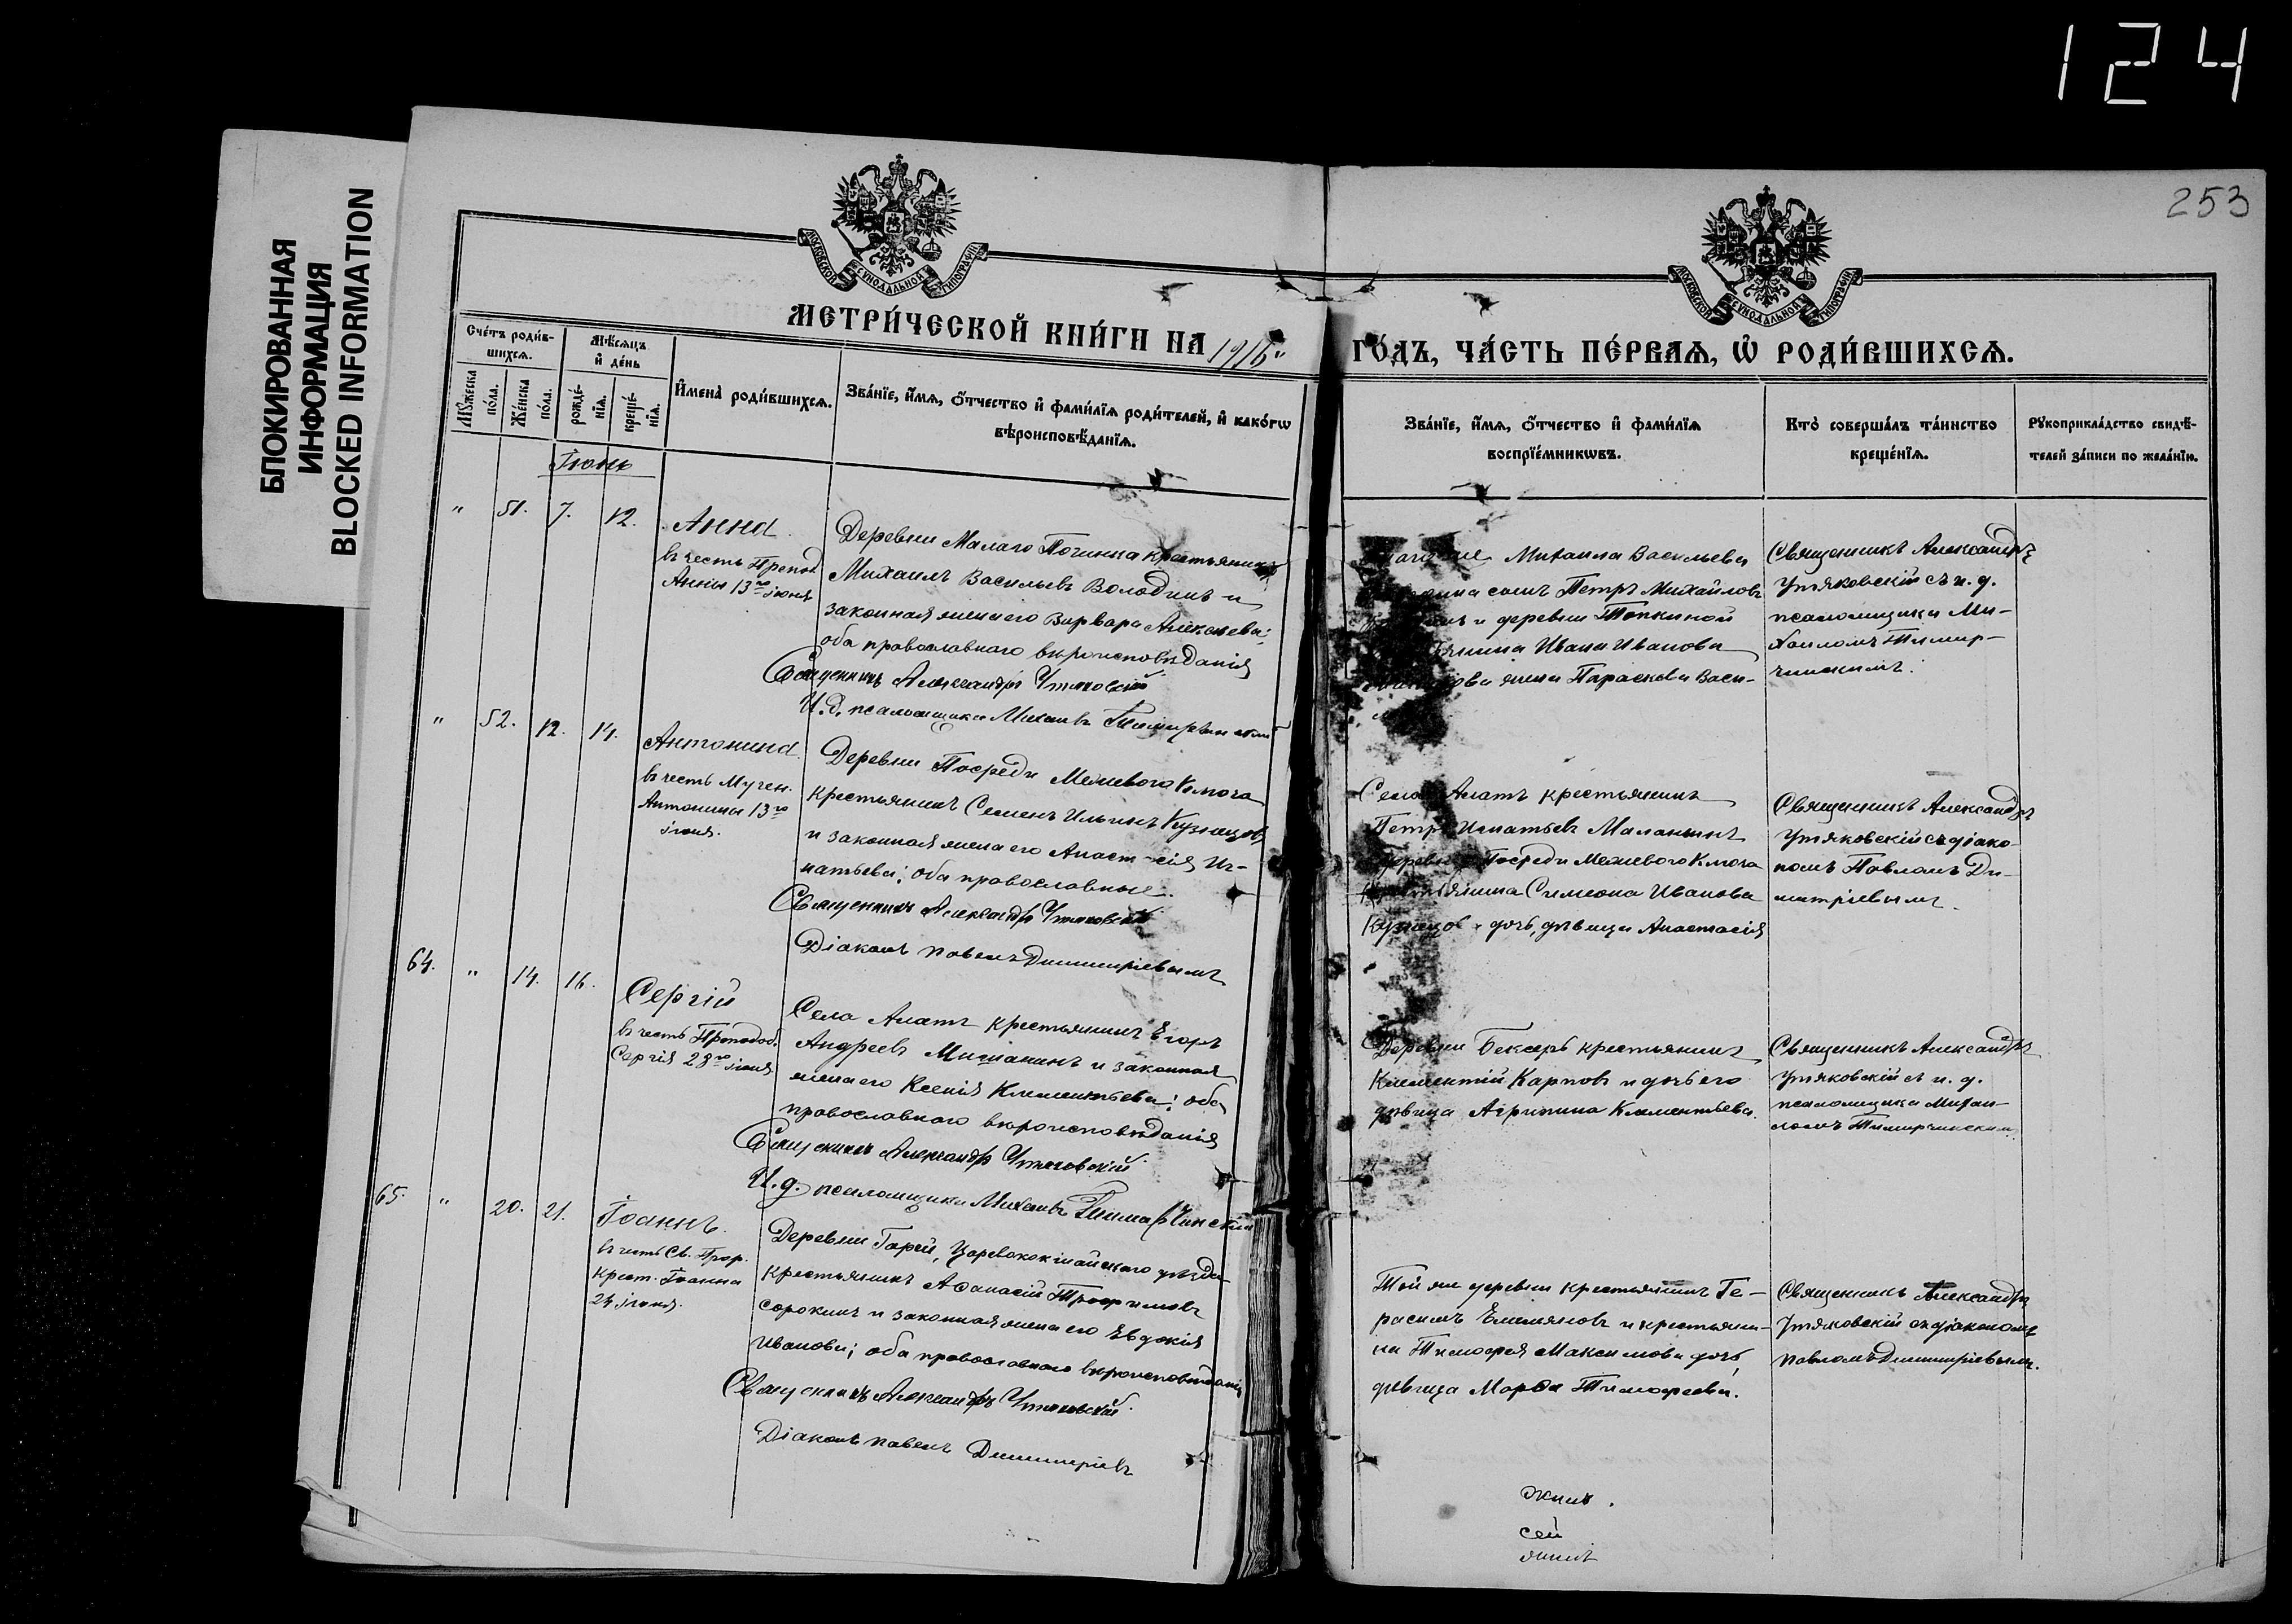 124
БЛОКИРОВАННАЯ
ИНФОРМАЦИЯ
BLOCKED INFORMATION
253
МОСКОВСКОЙ СѴНОДАЛЬНОЙ ТИПОГРАФІИ
МОСКОВСКОЙ СѴНОДАЛЬНОЙ ТИПОГРАФІИ
МЕТРИ́ЧЕСКОЙ КНИ́ГИ НА 1916 ГО́ДЪ, ЧА́СТЬ ПЕ́РВАѦ, Ѽ РОДИ́ВШИХСѦ.
Сче́тъ роди́в-
шихсѧ.
Мꙋ́жеска
по́ла.
Же́нска
по́ла.
Мѣ́сѧцъ
и҆ де́нь
рожде́-
нїѧ.
креще́-
нїѧ.
И҆мена̀ роди́вшихсѧ.
Зва́нїе, и҆́мѧ, ѻ҆́тчество и҆ фами́лїѧ роди́телей, и҆ како́гѡ
вѣроисповѣ́данїѧ.
Зва́нїе, и҆́мѧ, ѻ҆́тчество и҆ фами́лїѧ
воспрїе́мникѡвъ.
Кто̀ соверша́лъ та́инство
креще́нїѧ.
Рꙋкоприкла́дство свидѣ́-
телей за́писи по жела́нїю.
Іюнь
" 51. 7. 12.
Анна
въ честь Препод
Анны 13го іюня
Деревни Малаго Починка крестьянинъ
Михаилъ Васильевъ Володинъ и
законная жена его Варвара Алексеева;
оба православнаго вѣроисповѣданія
Священникъ Александръ Утяковскій
И. д. псаломщика Михаилъ
Михаила Васильева
сынъ Петръ Михайловъ
и деревни Топкиной
Ивана Иванова
жена Параскева Васи-
Священникъ Александръ
Утяковскій съ и. д.
псаломщика Ми-
хаиломъ
" 52. 12. 14.
Антонина
въ честь Мучен.
Антонины 13го
іюня.
Деревни Посреди Межевого Ключа
крестьянинъ Семенъ Ильинъ Кузнецовъ
и законная жена его Анастасія Иг-
натьева; оба православные.
Священникъ Александръ Утяковскій
Діаконъ Павелъ Димитріевымъ
Села Алатъ крестьянинъ
Петръ Игнатьевъ Маланьинъ
деревни Посреди Межевого Ключа
крестьянина Симеона Иванова
Кузнецова дочь, дѣвица Анастасія
Священникъ Александръ
Утяковскій съ діако-
номъ Павломъ Ди-
митріевымъ.
64. " 14. 16.
Сергій
въ честь Преподоб.
Сергія 28го іюня
Села Алатъ крестьянинъ Егоръ
Андреевъ Мишанинъ и законная
жена его Ксенія Климентьева; оба
православнаго вѣроисповѣданія
Священникъ Александръ Утяковскій
И. д. псаломщика Михаилъ
Деревни Бексеръ крестьянинъ
Климентій Карповъ и дочь его
дѣвица Агрипина Климентьева.
Священникъ Александръ
Утяковскій съ и. д.
псаломщика Михаи-
ломъ
65. " 20. 21.
Іоаннъ.
въ честь Св. Прор.
Крест. Іоанна
24 іюня.
Деревни Гарей, Царевококшайскаго уѣзда
крестьянинъ Аѳанасій Трофимовъ
Сорокинъ и законная жена его Евдокія
Иванова; оба православнаго вѣроисповѣданія
Священникъ Александръ Утяковскій.
Діаконъ Павелъ Димитріевъ
Той же деревни крестьянинъ Ге-
расимъ Емельяновъ и крестьяни-
на Тимофея Максимова дочь,
дѣвица Марѳа Тимофеева.
Священникъ Александръ
Утяковскій съ діакономъ
Павломъ Димитріевымъ.
сей